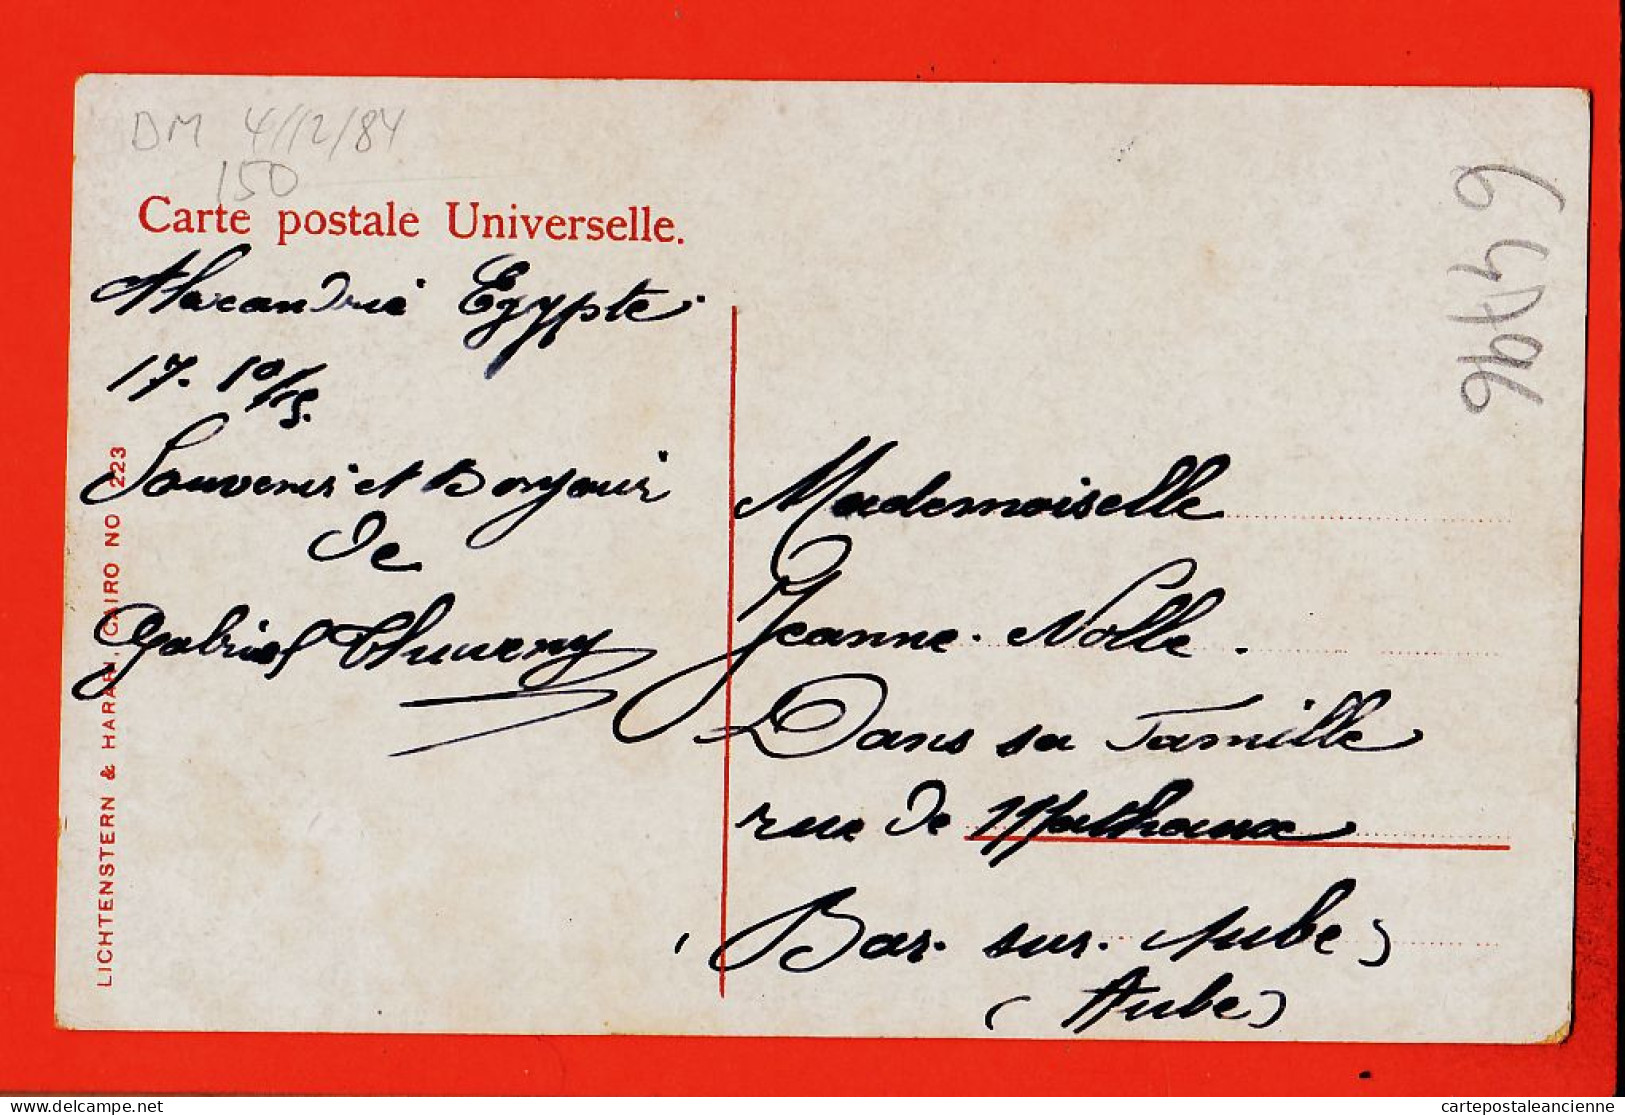 DM 4/12/84
150
Carte postale Universelle.
Alexandrie Egypte.
17. 10/5.
Souvenir et Bonjour
de
Gabriel Thuveny
LICHTENSTERN & HARARI, CAIRO NO 223
Mademoiselle
Jeanne. Nolle.
Dans sa Famille
rue de Mathaux
Bar. sur. Aube
(Aube)
delcampe.net
cartepostaleancienne